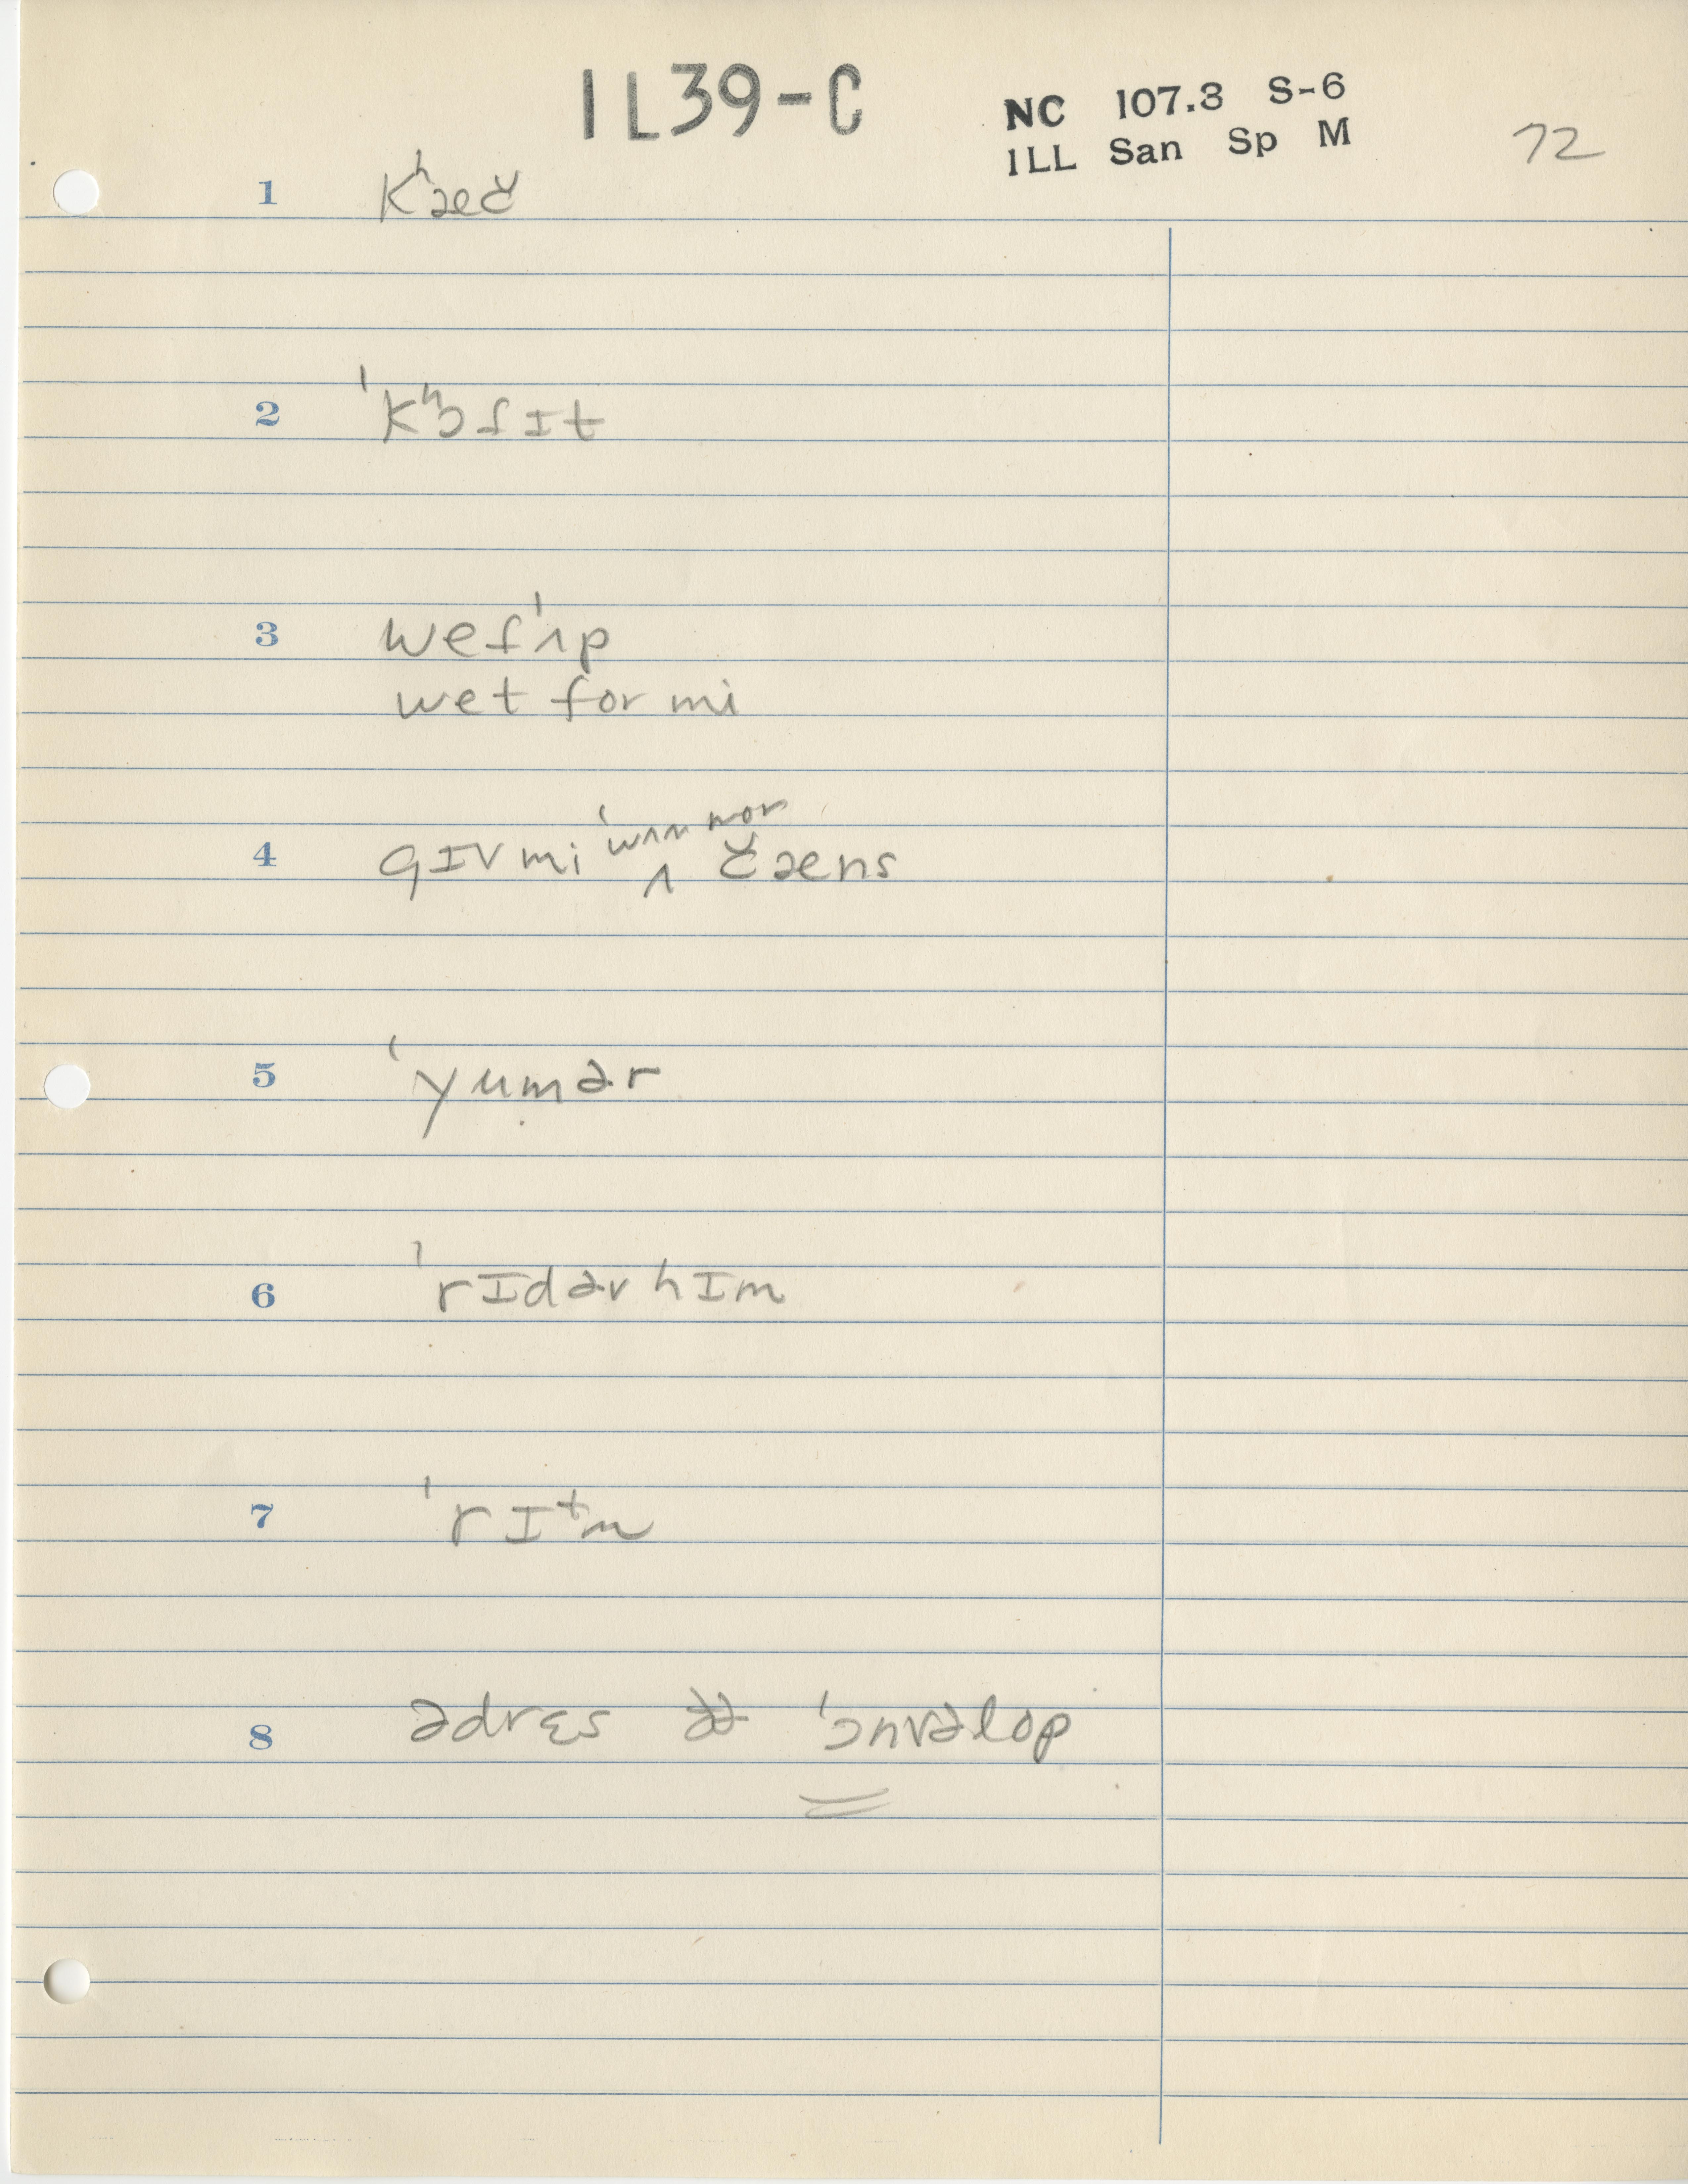 IL39-C
NC 107.3 S-6
ILL San Sp M
72
1 kʰæč
2 ˈkʰɔfɪt
3 wefˈʌp
wet for mi
4 gɪv mi ˈwʌn mor čæns
5 ˈyumər
6 ˈrɪdəv hɪm
7 ˈrɪtn
8 ədrɛs ðə ˈɔnvəlop